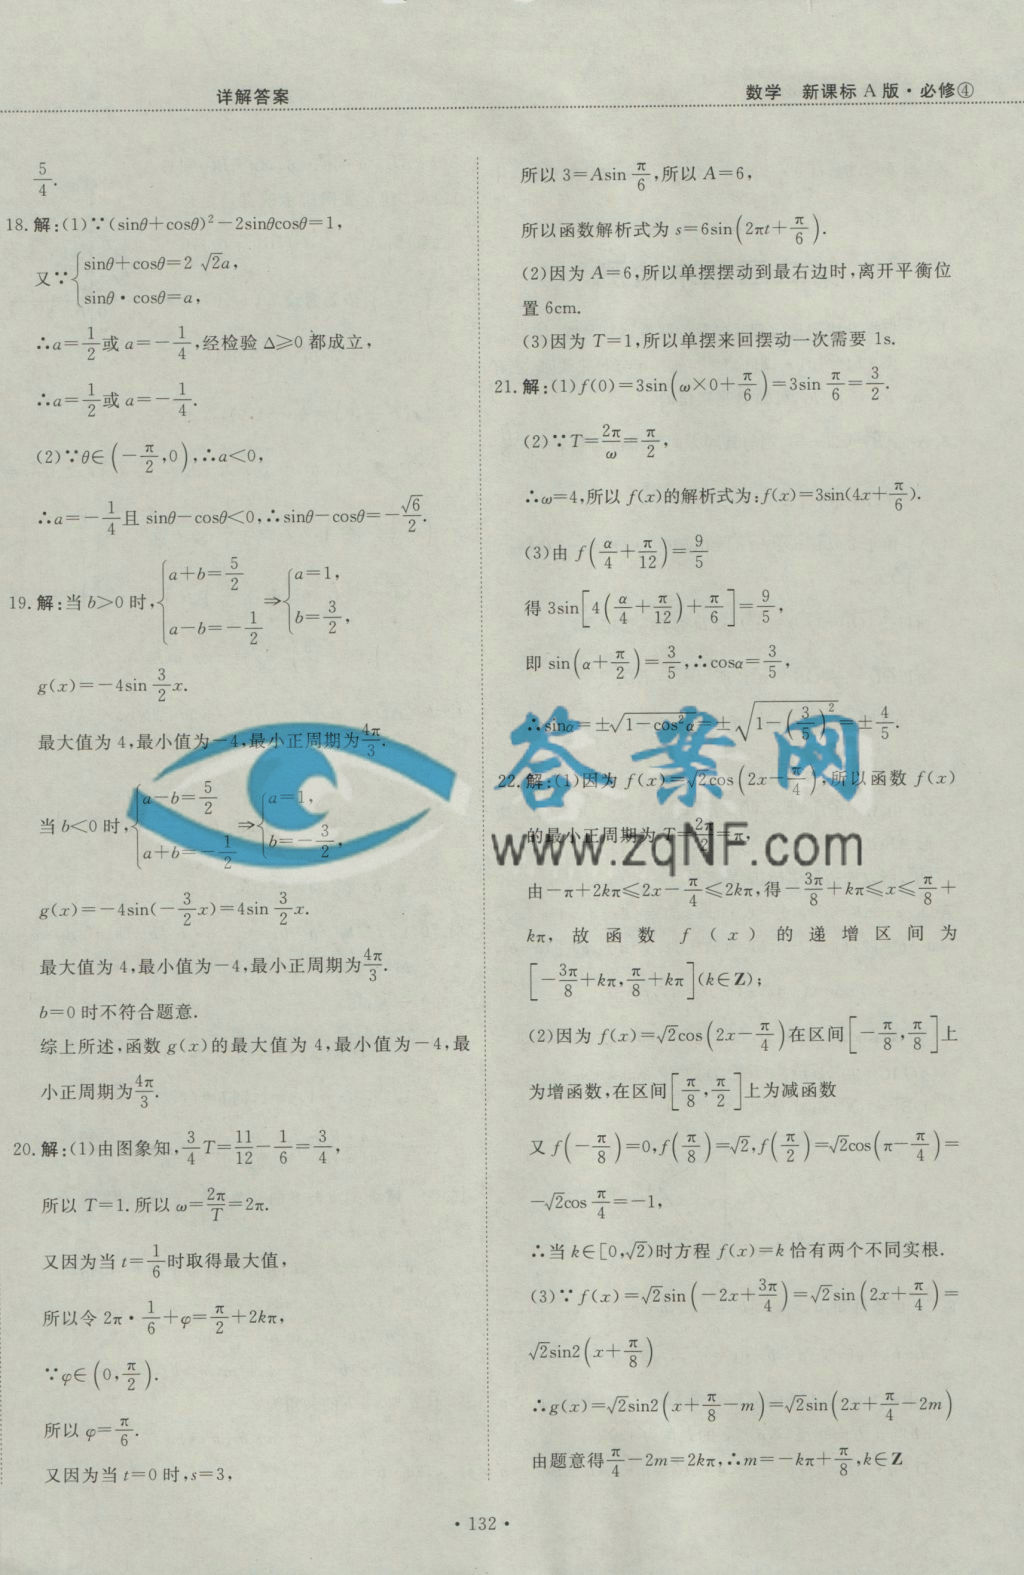 详解答案
数学 新课标A版·必修④
5/4.
18.解:(1)∵(sinθ+cosθ)²-2sinθcosθ=1,
又∵{sinθ+cosθ=2√2a,
sinθ·cosθ=a,
∴a=1/2或a=-1/4,经检验Δ≥0都成立,
∴a=1/2或a=-1/4.
(2)∵θ∈(-π/2,0),∴a<0,
∴a=-1/4且sinθ-cosθ<0,∴sinθ-cosθ=-√6/2.
19.解:当b>0时,{a+b=5/2, a-b=-1/2 ⇒{a=1, b=3/2,
g(x)=-4sin 3/2 x.
最大值为4,最小值为-4,最小正周期为4π/3.
当b<0时,{a-b=5/2, a+b=-1/2 ⇒{a=1, b=-3/2,
g(x)=-4sin(-3/2 x)=4sin 3/2 x.
最大值为4,最小值为-4,最小正周期为4π/3.
b=0时不符合题意.
综上所述,函数g(x)的最大值为4,最小值为-4,最
小正周期为4π/3.
20.解:(1)由图象知,3/4 T=11/12-1/6=3/4,
所以T=1.所以ω=2π/T=2π.
又因为当t=1/6时取得最大值,
所以令2π·1/6+φ=π/2+2kπ,
∵φ∈(0,π/2).
所以φ=π/6.
又因为当t=0时,s=3,
所以3=Asin π/6,所以A=6,
所以函数解析式为s=6sin(2πt+π/6).
(2)因为A=6,所以单摆摆动到最右边时,离开平衡位
置6cm.
(3)因为T=1,所以单摆来回摆动一次需要1s.
21.解:(1)f(0)=3sin(ω×0+π/6)=3sin π/6=3/2.
(2)∵T=2π/ω=π/2,
∴ω=4,所以f(x)的解析式为:f(x)=3sin(4x+π/6).
(3)由f(α/4+π/12)=9/5
得3sin[4(α/4+π/12)+π/6]=9/5,
即sin(α+π/2)=3/5,∴cosα=3/5,
∴sinα=±√(1-cos²α)=±√(1-(3/5)²)=±4/5.
22.解:(1)因为f(x)=√2cos(2x-π/4),所以函数f(x)
的最小正周期为T=2π/2=π,
由-π+2kπ≤2x-π/4≤2kπ,得-3π/8+kπ≤x≤π/8+
kπ,故函数f(x)的递增区间为
[-3π/8+kπ,π/8+kπ](k∈Z);
(2)因为f(x)=√2cos(2x-π/4)在区间[-π/8,π/8]上
为增函数,在区间[π/8,π/2]上为减函数
又f(-π/8)=0,f(π/8)=√2,f(π/2)=√2cos(π-π/4)=
-√2cos π/4=-1,
∴当k∈[0,√2)时方程f(x)=k恰有两个不同实根.
(3)∵f(x)=√2sin(-2x+3π/4)=√2sin(2x+π/4)=
√2sin2(x+π/8)
∴g(x)=√2sin2(x+π/8-m)=√2sin(2x+π/4-2m)
由题意得π/4-2m=2kπ,∴m=-kπ+π/8,k∈Z
答案网
www.zqNF.com
·132·